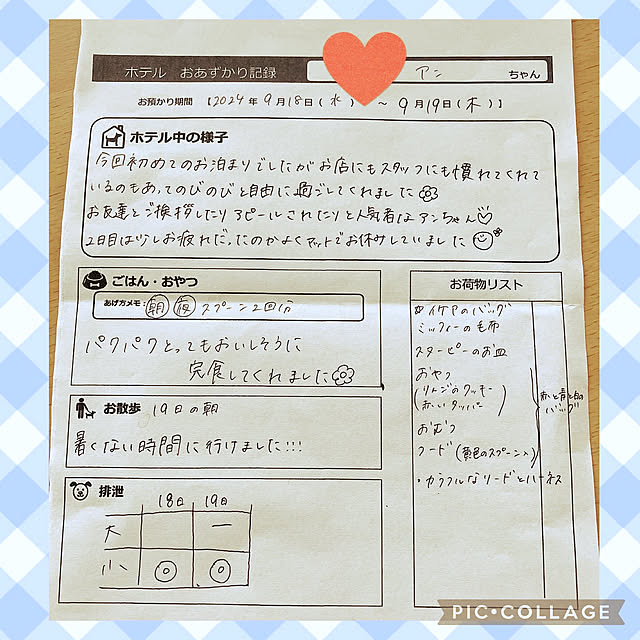 ホテル おあずかり記録 アン ちゃん
お預かり期間 【2024年9月18日(水) ～ 9月19日(木)】
ホテル中の様子
今回初めてのお泊まりでしたがお店にもスタッフにも慣れてくれて
いるのもあってのびのびと自由に過ごしてくれました
お友達とご挨拶したりアピールされたりと人気者なアンちゃん♡
2日目は少しお疲れだったのかよくマットでお休みしていました
ごはん・おやつ
あげ方メモ: 朝 夜 スプーン2回分
パクパクとってもおいしそうに
完食してくれました
お散歩 19日の朝
暑くない時間に行けました!!!
排泄
18日 19日
大 一
小 ◎ ◎
お荷物リスト
イケアのバッグ
ミッフィーの毛布
スヌーピーのお皿
おやつ
(りんごのクッキー
赤いタッパー)
おむつ
フード(黄色のスプーン入)
赤と青と白の
バッグ
・カラフルなリードとハーネス
PIC•COLLAGE